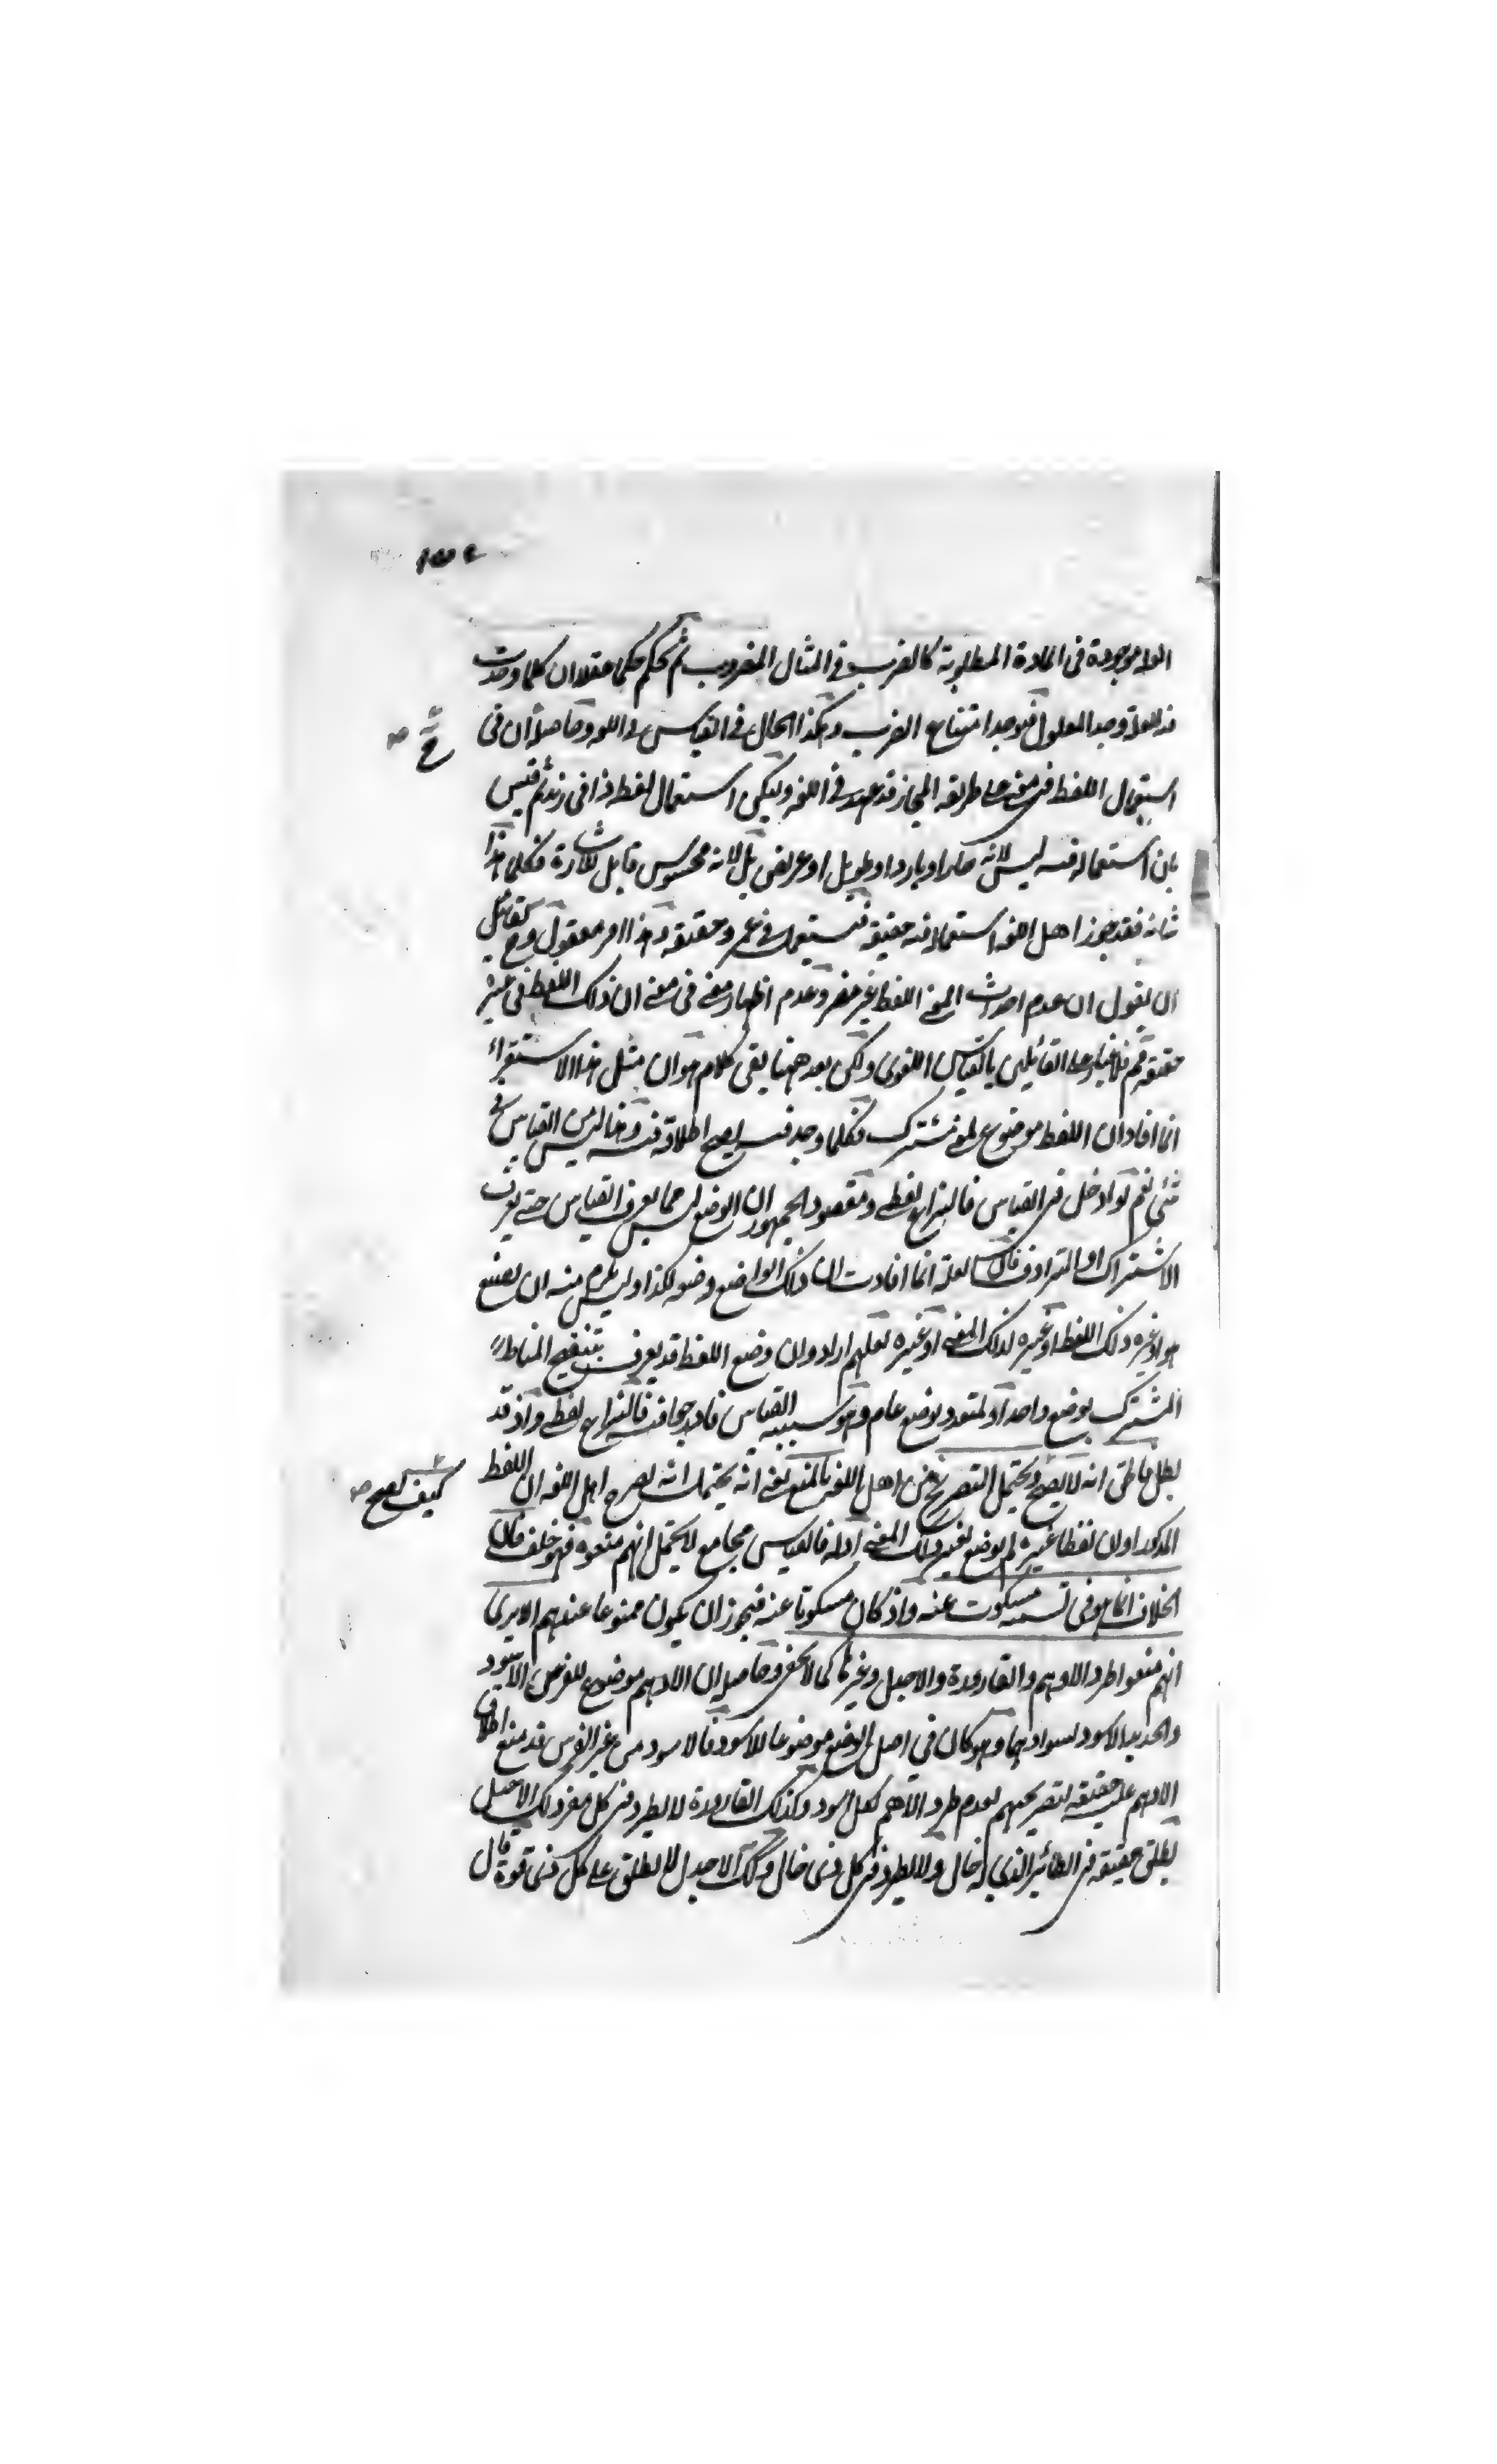 موجودة في المادة المطلوبة كالضرب في المثال المضروب ثم يحكم حكما عقلا ان كلما وجدت
العلة وجد المعلول فيوجد امتناع الضرب وهكذا الحال في القياس في اللغة وحاصله ان في
استعمال اللفظ في معنى على طريقه المجاز قد عهد في اللغة وليكن استعمال لفظ ذا في زيد ثم قيس
بان استعماله فيه ليس لانه حار او بارد او طويل او عريض بل لانه محسوس قابل للاشارة فكلما هذا
شانه فقد جوز اهل اللغة استعماله فيه حقيقة فيستعمل في عمرو حقيقة وهذا امر معقول وح لقائل
ان يقول ان عدم احداث المعنى اللفظ غير مضر وعدم اظهار معنى في معنى ان ذلك اللفظ في غيره
حقيقة ثم فلا غبار على القائلين بالقياس اللغوي ولكن بعد ههنا بقي كلام هو ان مثل هذا الاستقراء
انما افاد ان اللفظ موضوع لمعنى مشترك فكلما وجد فيه يصح اطلاقه فيه وهذا ليس من القياس في
شئ نعم لو ادخل في القياس فالنزاع لفظي ومقصود الجمهور ان الوضع ليس مما يعرف القياس حتى يعرف
الاشتراك او الترادف قال لعله انما افادت ان ذلك الواضع وضعه لكذا وليس يلزم منه ان يضع
هو او غيره ذلك اللفظ او غيره لذلك المعنى او غيره لعلهم ارادوا ان وضع اللفظ قد يعرف بتنقيح المناط
المشترك بوضع واحد او لمتعدد بوضع عام وهو سببيه القياس فادرجوا فيه فالنزاع لفظي واذ قد
بطل ما ظن انه لا يصح ويحتمل التصريح عن اهل اللغة بالمنع يعني انه يحتمل انه يصرح اهل اللغة ان اللفظ
المذكور او ان لفظا غيره لم يوضع لغير ذلك المعنى او له فالقياس بجامع لا يحتمل انهم منعوه فهو خلف فان
الخلاف انما هو في تسمية مسكوت عنه واذ كان مسكوتا عنه فيجوز ان يكون ممنوعا عندهم الا يرى
انهم منعوا طرد الادهم والقارورة والاجدل وغيرها كما لا يخفى وحاصله ان الادهم موضوع للفرس الاسود
والحديد الاسود لسوادهما وهو كان في اصل الوضع موضوعا للاسود فالاسود من غير الفرس قد منع اطلاق
الادهم عليه حقيقة لتصريحهم لعدم طرد الادهم لكل اسود وكذلك القارورة لا يطرد في كل مقر وكذلك الاخيل
يطلق حقيقة في الطائر الذي له خال ولا يطرد في كل ذي خال وكذلك الاجدل لا يطلق على كل ذي قوة قال
كيف يصح صح